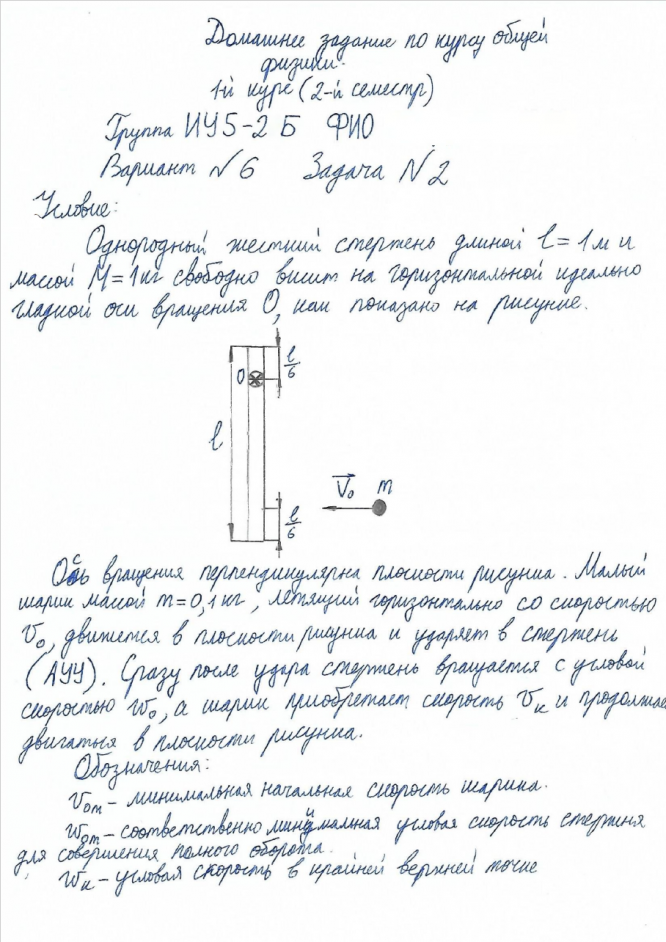 Домашнее задание по курсу общей
физики.
1-й курс (2-й семестр)
Группа ИУ5-2 Б ФИО
Вариант №6 Задача №2
Условие:
Однородный жесткий стержень длиной l = 1 м и
массой M = 1 кг свободно висит на горизонтальной идеально
гладкой оси вращения О, как показано на рисунке.
l/6
О
l
V₀ m
l/6
Ось вращения перпендикулярна плоскости рисунка. Малый
шарик массой m = 0,1 кг, летящий горизонтально со скоростью
v₀, движется в плоскости рисунка и ударяет в стержень
(АУУ). Сразу после удара стержень вращается с угловой
скоростью w₀, а шарик приобретает скорость vк и продолжает
двигаться в плоскости рисунка.
Обозначения:
v₀m – минимальная начальная скорость шарика.
w₀m – соответственно минимальная угловая скорость стержня
для совершения полного оборота.
wк – угловая скорость в крайней верхней точке